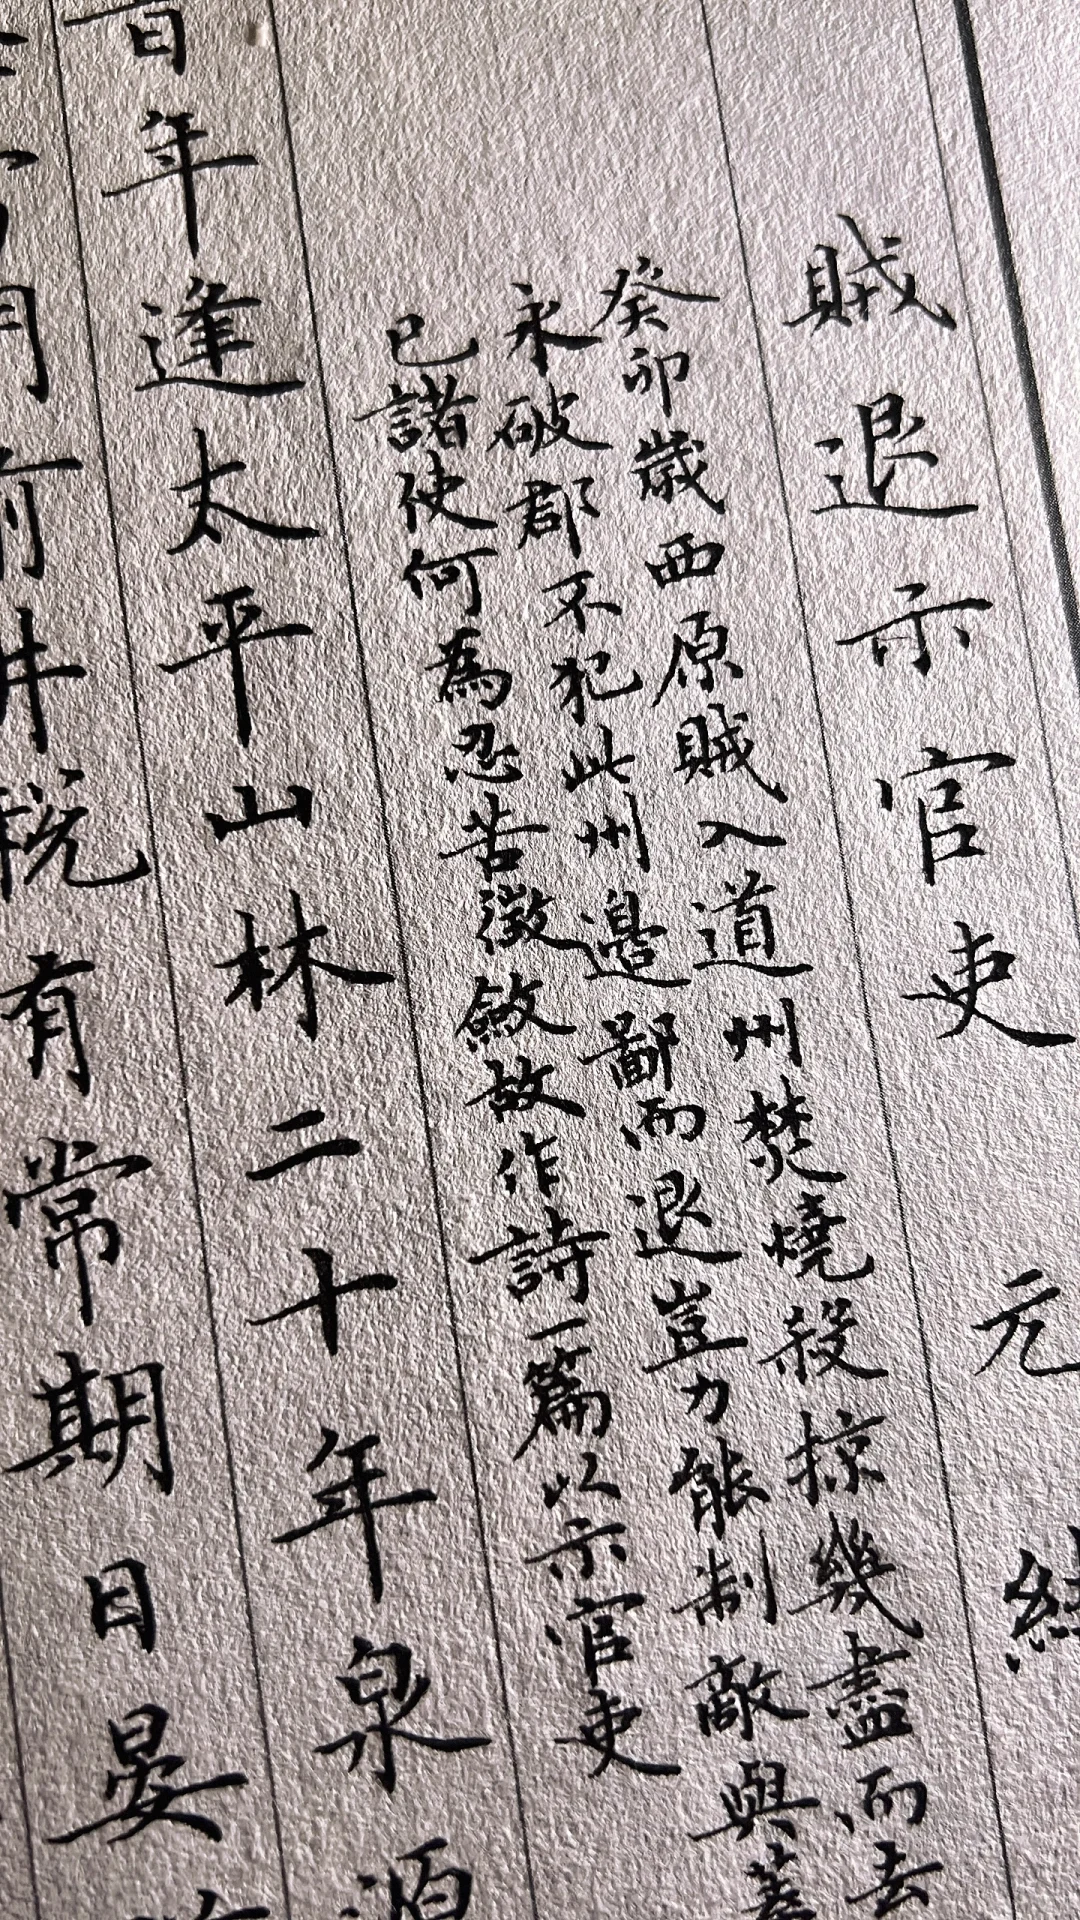 賊退示官吏 元結
癸卯歲西原賊入道州焚燒殺掠幾盡而去
永破郡不犯此州邊鄙而退豈力能制敵與蓋
已諸使何為忍苦徵斂故作詩一篇以示官吏
百年逢太平山林二十年泉源
門前井稅有常期日晏